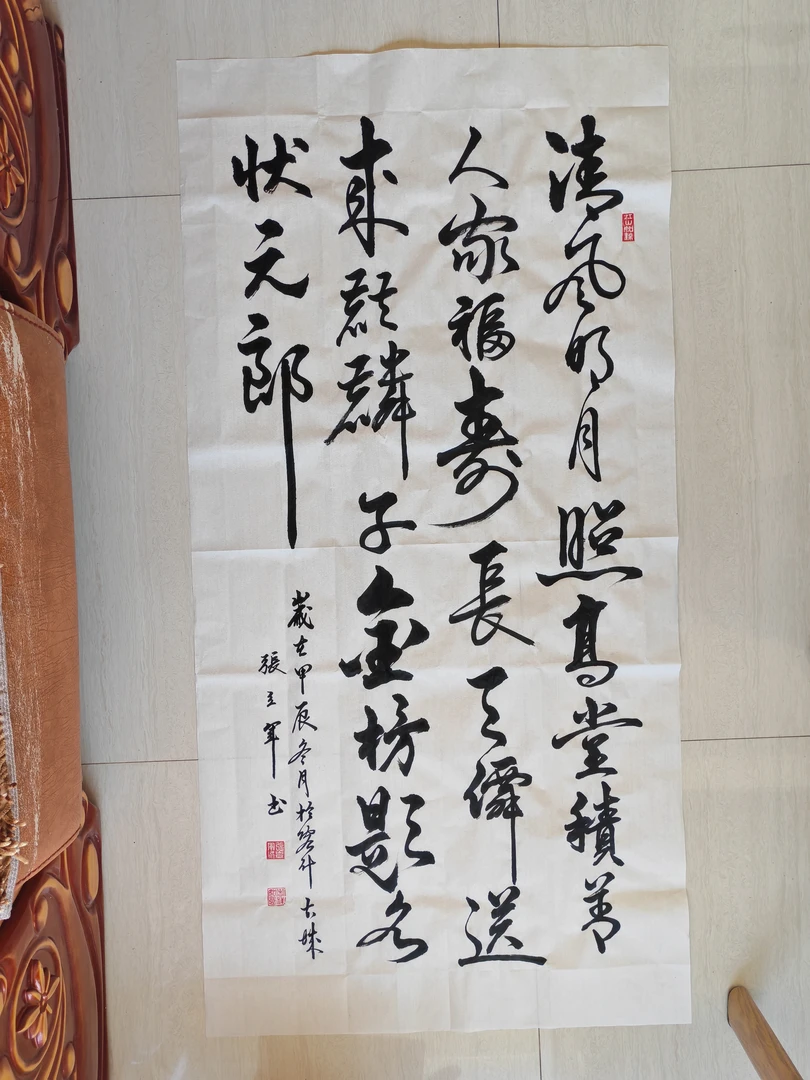 清風明月照高堂積善
人家福壽長天僊送
來麒麟子金榜題名
狀元郎
歲在甲辰冬月於古城
張立軍书